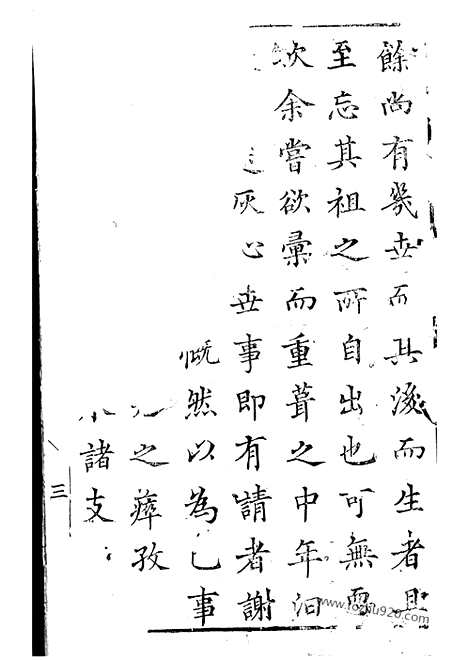 餘尚有幾世而其後而生者
至忘其祖之所自出也可無
余嘗欲彙而重葺之中年
灰心世事即有請者謝
慨然以為己事
之瘁孜
諸支
三
www.fozhu920.com